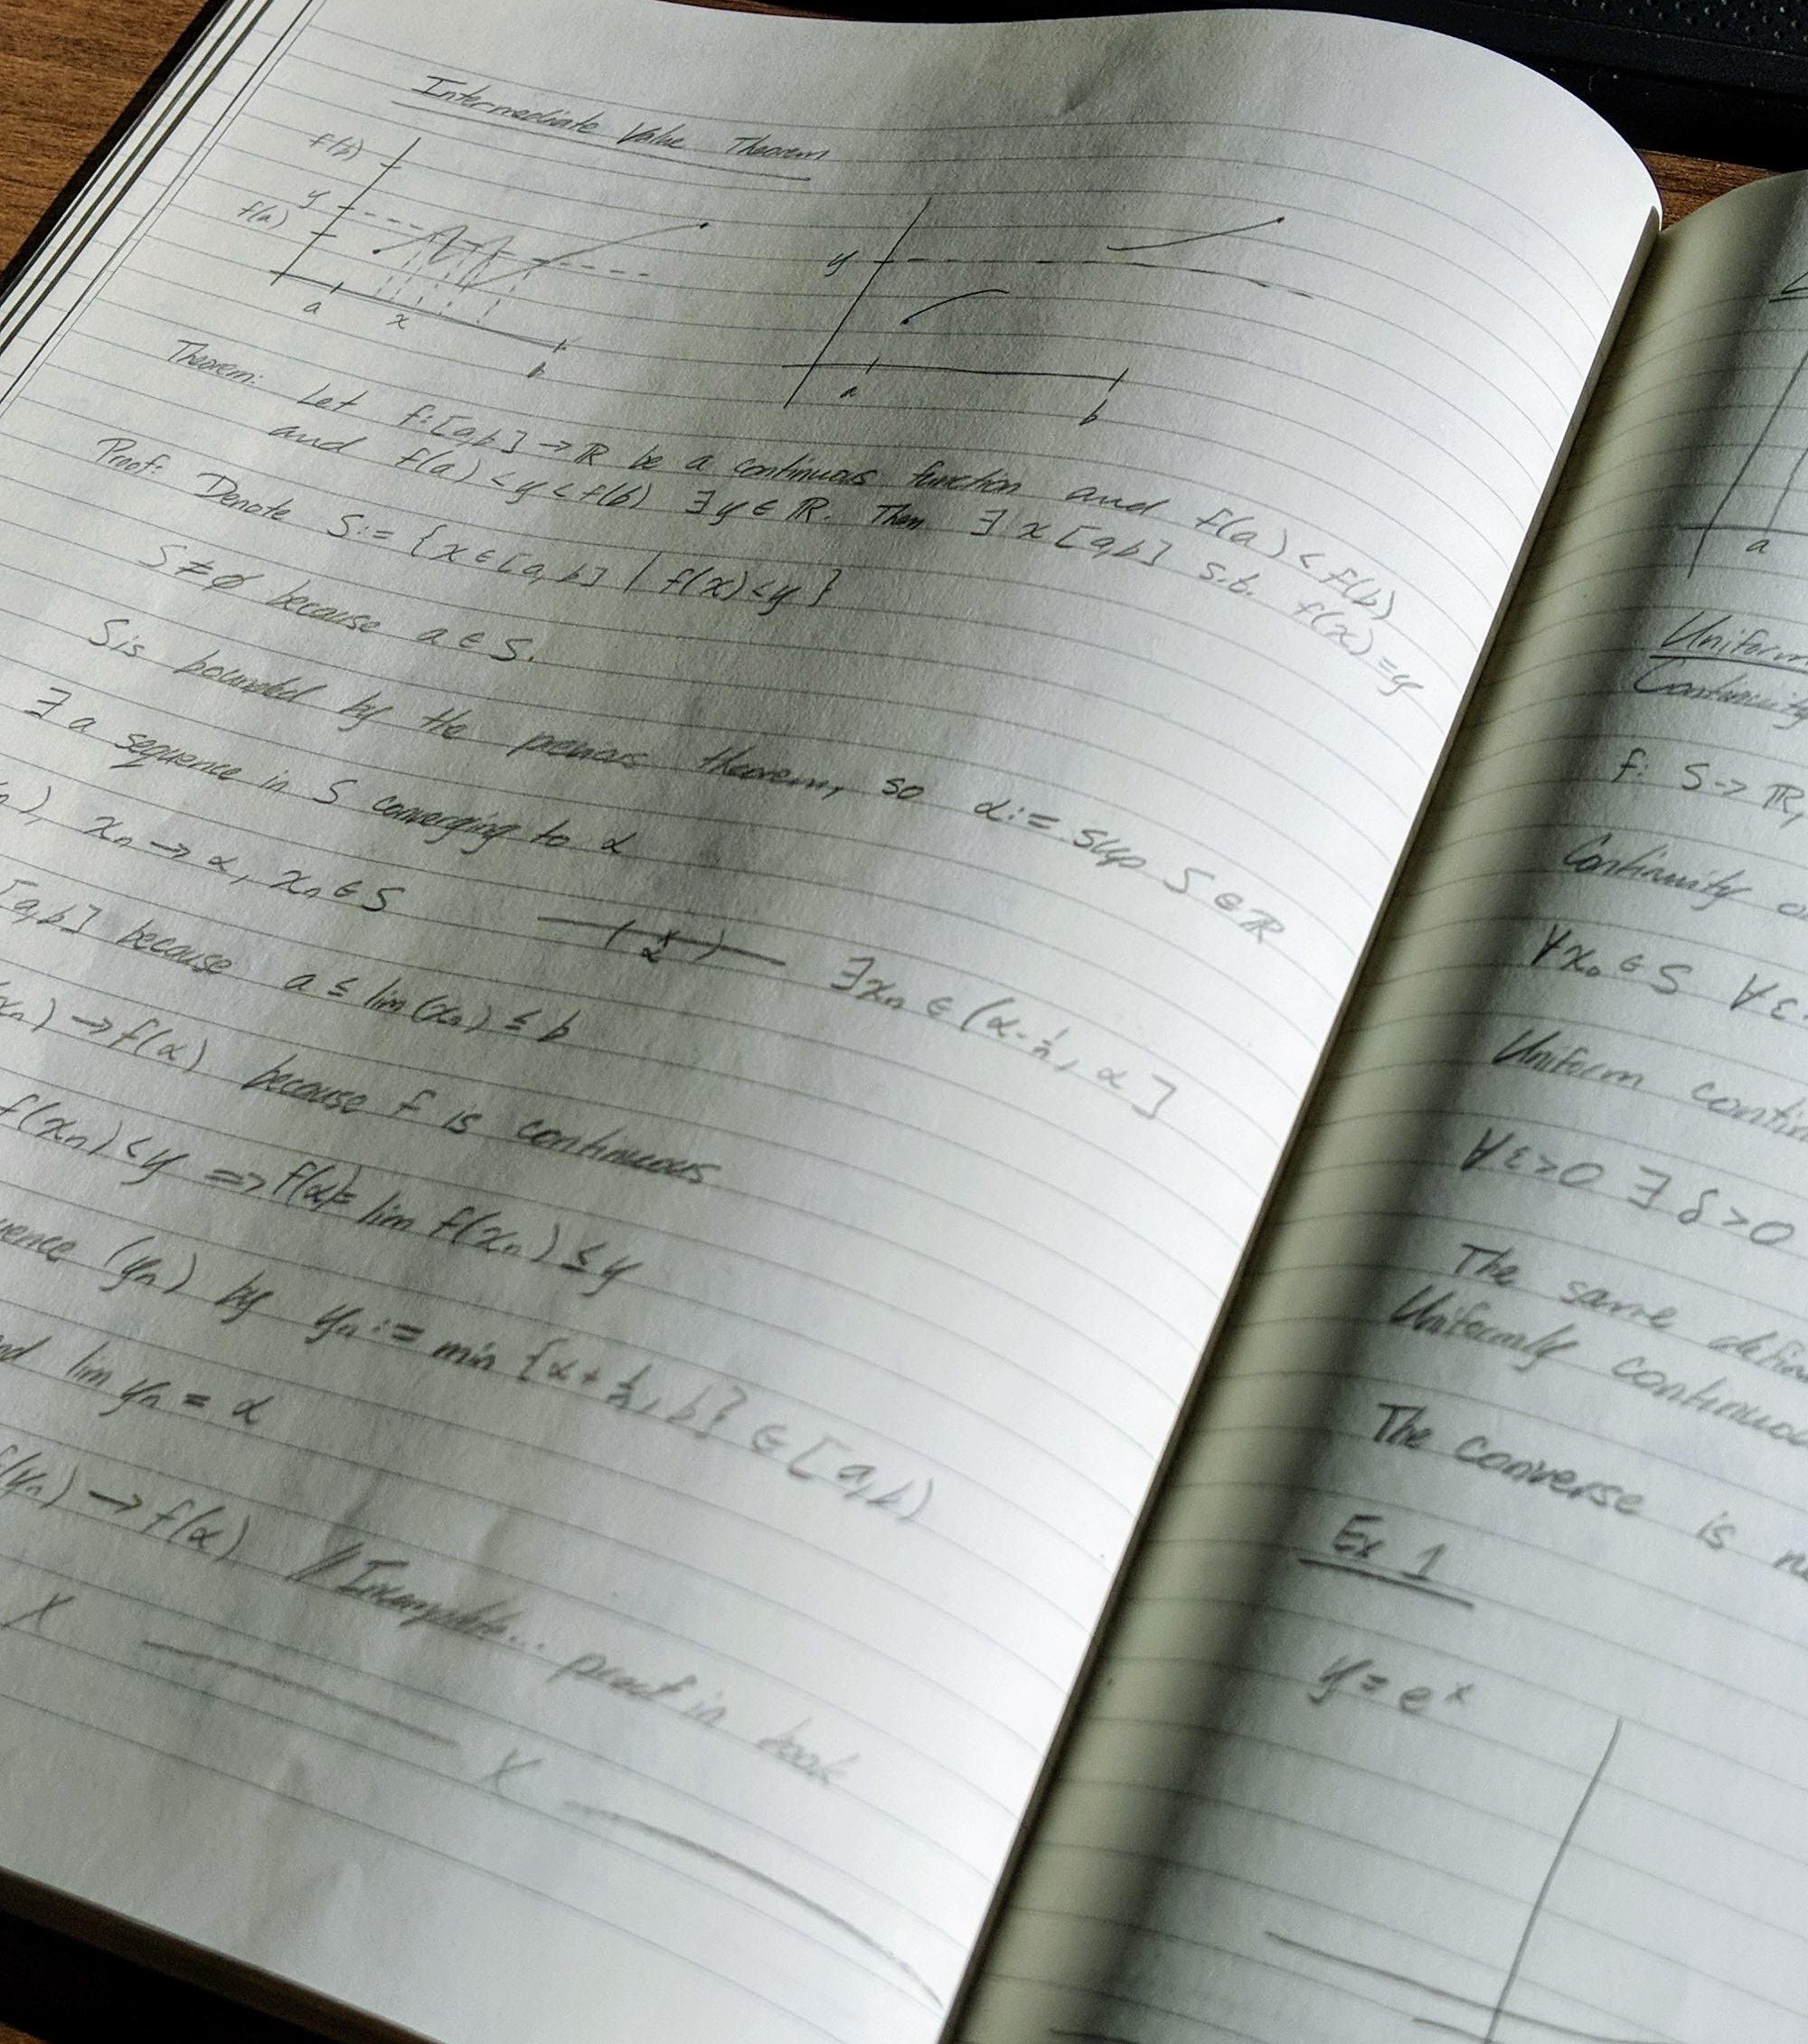 Intermediate Value Theorem
f(b)
y
f(a)
a
x
b
y
a
b
Theorem: Let f: [a,b] → ℝ be a continuous function and f(a) < f(b)
and f(a) < y < f(b) ∃ y ∈ ℝ. Then ∃ x [a,b] s.t. f(x) = y
Proof: Denote S := {x ∈ [a,b] | f(x) < y}
S ≠ ∅ because a ∈ S.
S is bounded by the previous theorem, so α := sup S ∈ ℝ
∃ a sequence in S converging to α
n), xn → α, xn ∈ S
( x )
α
∃ xn ∈ (α - 1/n, α]
[a,b] because a ≤ lim(xn) ≤ b
(xn) → f(α) because f is continuous
f(xn) < y => f(α) = lim f(xn) ≤ y
uence (yn) by yn := min {α + 1/n, b} ∈ [a,b)
nd lim yn = α
f(yn) → f(α) // Incomplete... proof in book
X
X
a
Uniform
Continuity
f: S -> ℝ,
Continuity o
∀x₀ ∈ S ∀ε
Uniform contin
∀ε>0 ∃ δ>0
The same defin
Uniformly continuou
The converse is n
Ex 1
y = e^x